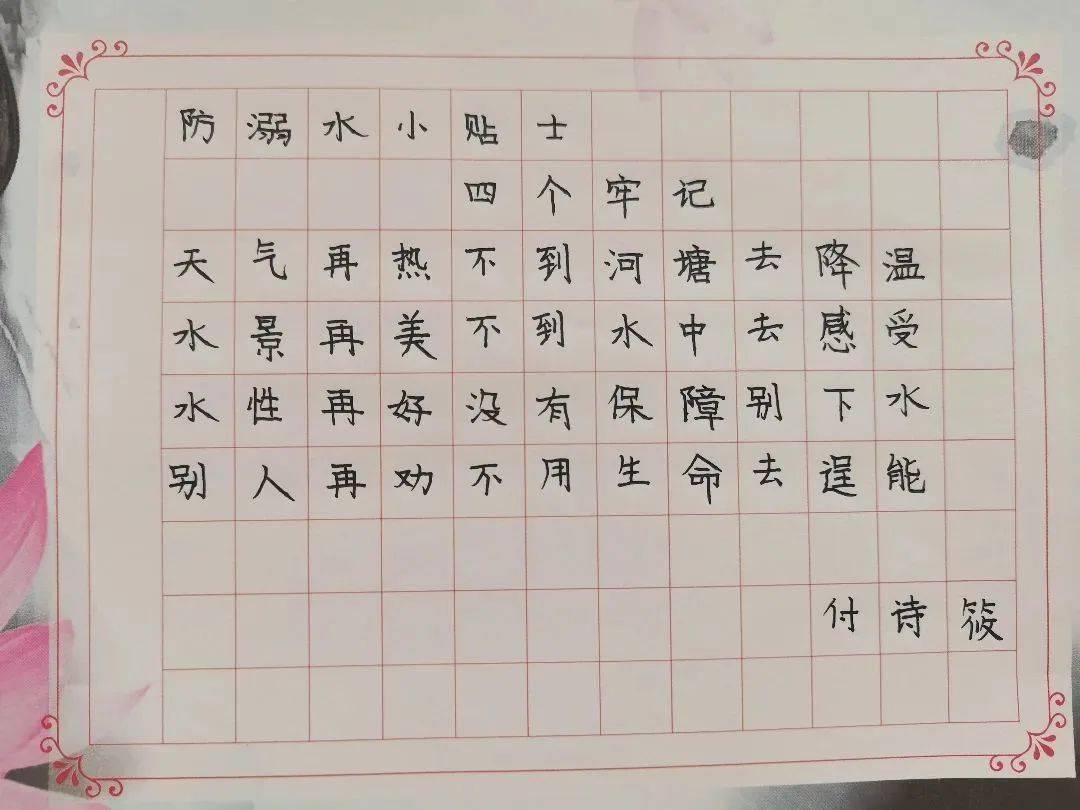 防溺水小贴士
四个牢记
天气再热不到河塘去降温
水景再美不到水中去感受
水性再好没有保障别下水
别人再劝不用生命去逞能
付诗筱